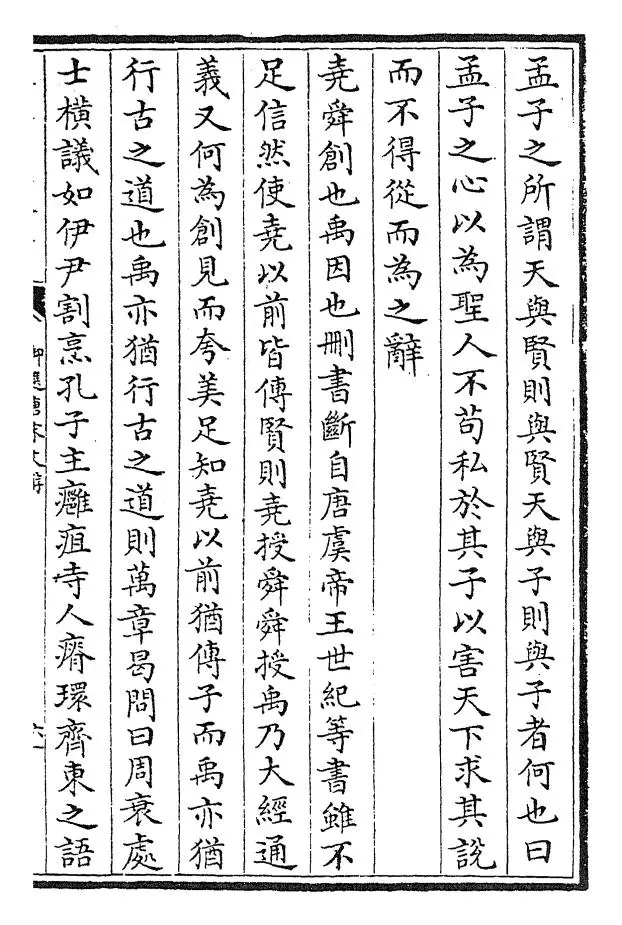 孟子之所謂天與賢則與賢天與子則與子者何也曰
孟子之心以為聖人不苟私於其子以害天下求其說
而不得從而為之辭
堯舜創也禹因也刪書斷自唐虞帝王世紀等書雖不
足信然使堯以前皆傳賢則堯授舜舜授禹乃大經通
義又何為創見而夸美足知堯以前猶傳子而禹亦猶
行古之道也禹亦猶行古之道則萬章曷問曰周衰處
士橫議如伊尹割烹孔子主癰疽寺人瘠環齊東之語
御選唐宋文醇